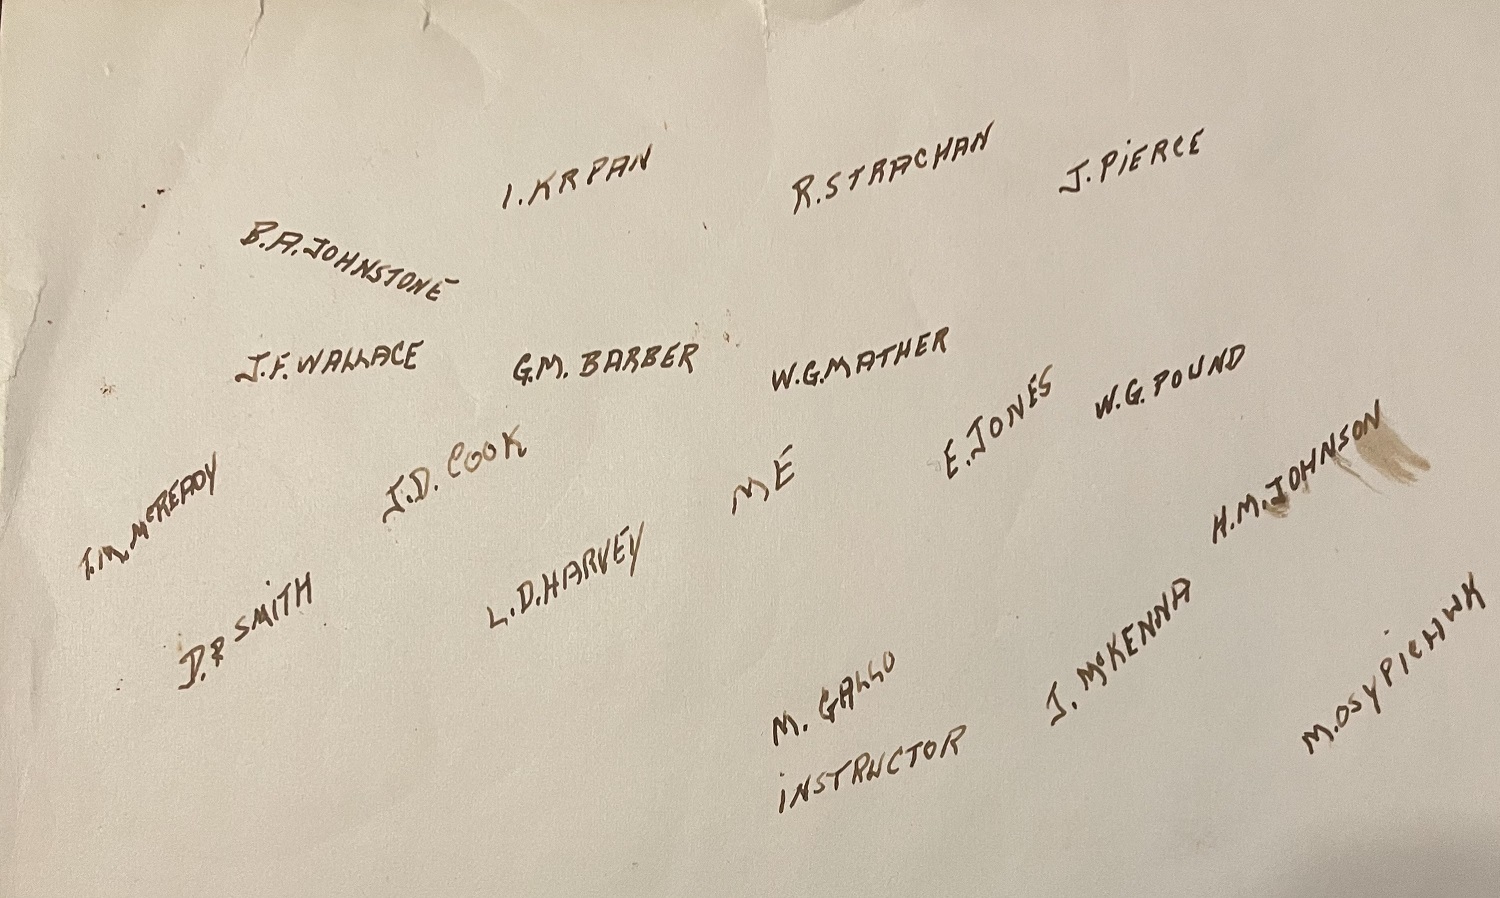 I. KRPAN
R. STRACHAN
J. PiERCE
B.A. JOHNSTONE
J.F. WALLACE
G.M. BARBER
W.G. MATHER
W.G. POUND
E. JONES
T.M. McREADY
J.D. COOK
ME
H.M. JOHNSON
D.R SMiTH
L.D. HARVEY
M. GALLO
iNSTRUCTOR
J. McKENNA
M. OSYPiCHUK